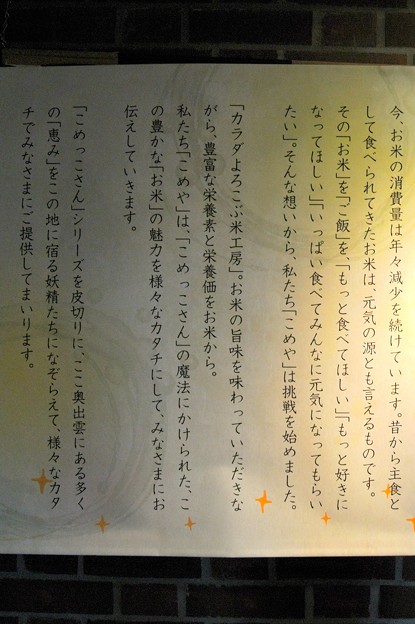 今、お米の消費量は年々減少を続けています。昔から主食と
して食べられてきたお米は、元気の源とも言えるものです。
その「お米」を「ご飯」を、「もっと食べてほしい」「もっと好きに
なってほしい」「いっぱい食べてみんなに元気になってもらい
たい」。そんな想いから、私たち「こめや」は挑戦を始めました。
「カラダよろこぶ米工房」。お米の旨味を味わっていただきな
がら、豊富な栄養素と栄養価をお米から。
私たち「こめや」は、「こめっこさん」の魔法にかけられた、こ
の豊かな「お米」の魅力を様々なカタチにして、みなさまにお
伝えしていきます。
「こめっこさん」シリーズを皮切りに、ここ奥出雲にある多く
の「恵み」をこの地に宿る妖精たちになぞらえて、様々なカタ
チでみなさまにご提供してまいります。